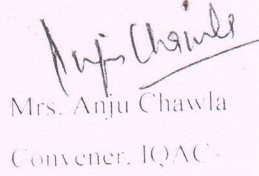 Anju Chawla
Mrs. Anju Chawla
Convener, IQAC-